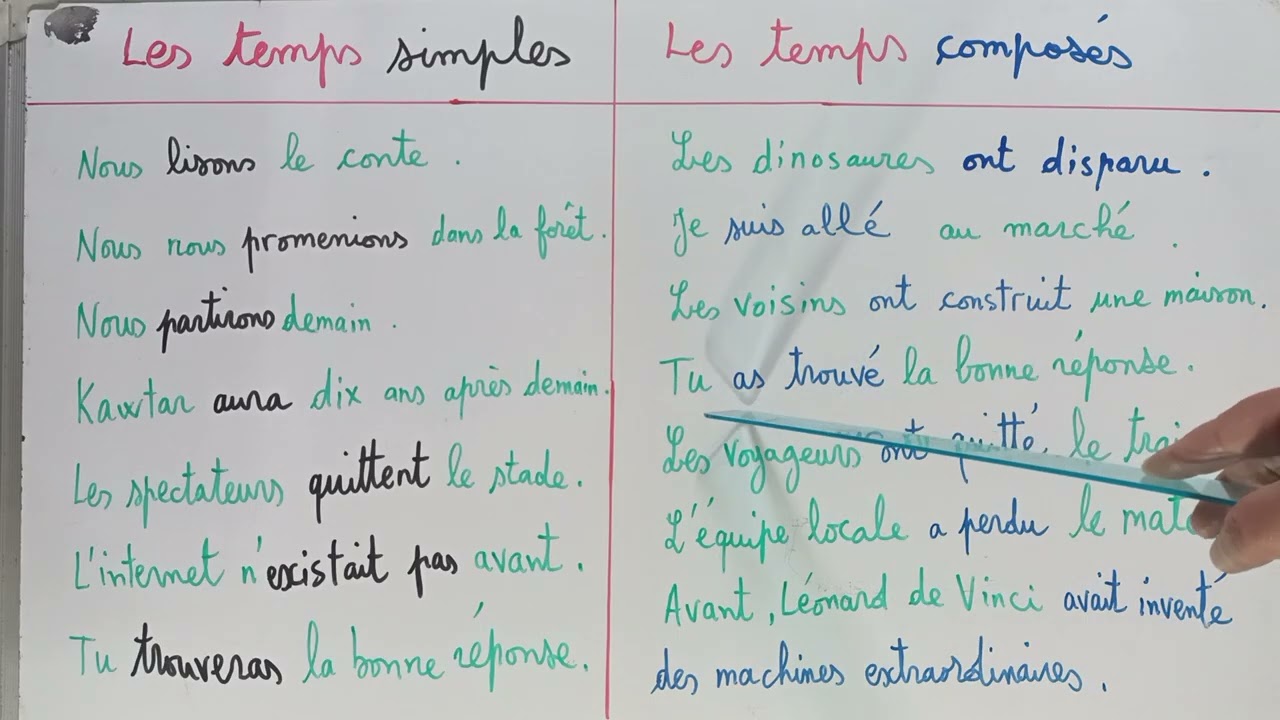 Les temps simples
Nous lisons le conte .
Nous nous promenions dans la forêt .
Nous partirons demain .
Kawtar aura dix ans après demain.
Les spectateurs quittent le stade .
L'internet n'existait pas avant .
Tu trouveras la bonne réponse .
Les temps composés
Les dinosaures ont disparu .
Je suis allé au marché .
Les voisins ont construit une maison .
Tu as trouvé la bonne réponse .
Les voyageurs ont quitté le
L'équipe locale a perdu le
Avant , Léonard de Vinci avait inventé
des machines extraordinaires .